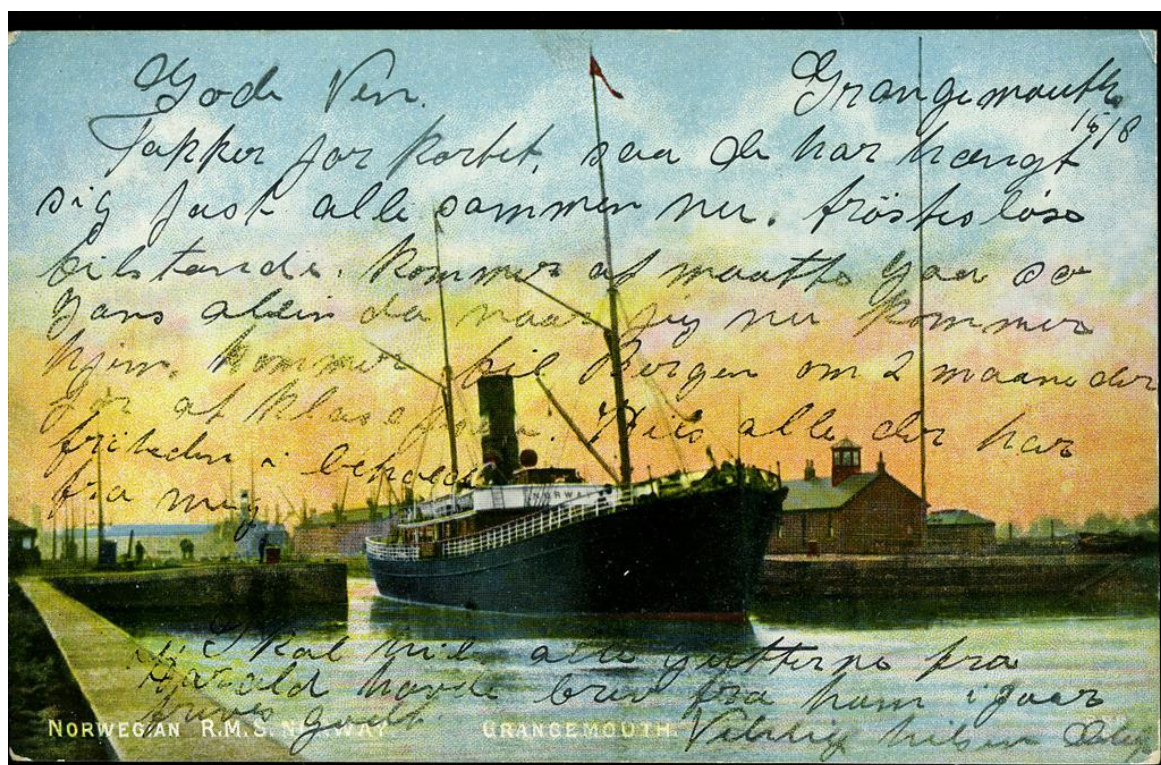 Gode Ven. Grangemouth
15/8
Takker for kortet, saa de har hængt
sig fast alle sammen nu. tröstesløse
tilstande. kommer at maatte gaa
gans alein da naar jeg nu kommer
hjem, kommer til Bergen om 2 maaneder
for at. Hils alle der har
friheden i behold
fra mig
Skal hils alle gutterne fra
Harald havde brev fra ham igaar
godt.
NORWEGIAN R.M.S. NORWAY GRANGEMOUTH.
Nilsen
NORWAY